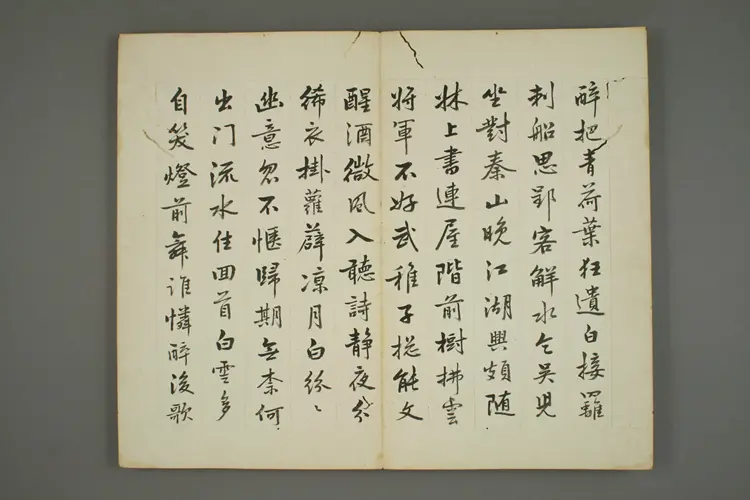 醉把青荷葉狂遺白接䍦
刺船思郢客解水乞吳兒
坐對秦山晚江湖興頗随
牀上書連屋階前樹拂雲
將軍不好武稚子揔能文
醒酒微風入聽詩靜夜分
絺衣掛蘿薜涼月白紛〻
幽意忽不愜歸期無柰何
出门流水住回首白雲多
自笑燈前舞谁憐醉後歌